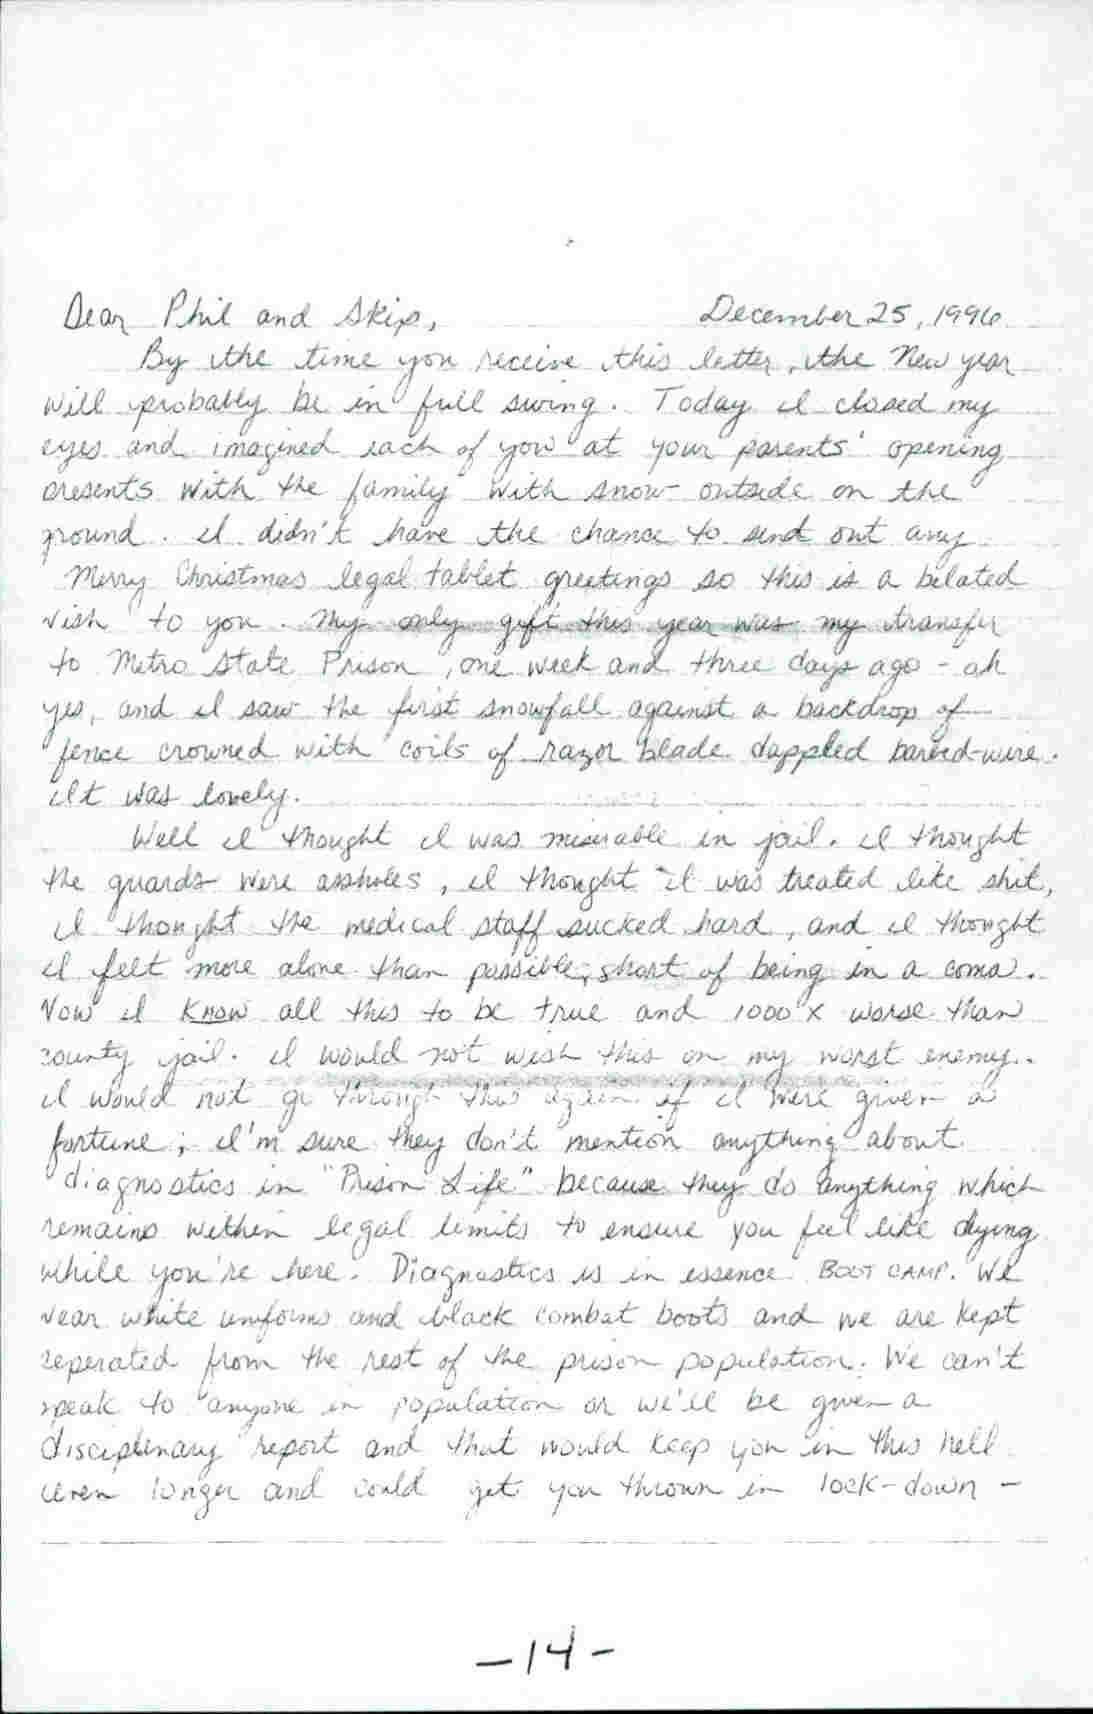 Dear Phil and Skip, December 25, 1996
By the time you receive this letter, the New year
will probably be in full swing. Today I closed my
eyes and imagined each of you at your parents' opening
presents with the family with snow outside on the
ground. I didn't have the chance to send out any
Merry Christmas legal tablet greetings so this is a belated
wish to you. My only gift this year was my transfer
to Metro State Prison, one week and three days ago - ah
yes, and I saw the first snowfall against a backdrop of
fence crowned with coils of razor blade dappled barbed-wire.
It was lovely.
Well I thought I was miserable in jail. I thought
the guards were assholes, I thought I was treated like shit,
I thought the medical staff sucked hard, and I thought
I felt more alone than possible, short of being in a coma.
Now I know all this to be true and 1000 x worse than
county jail. I would not wish this on my worst enemy.
I would not go through this again if I were given a
fortune; I'm sure they don't mention anything about
diagnostics in "Prison Life" because they do anything which
remains within legal limits to ensure you feel like dying
while you're here. Diagnostics is in essence BOOT CAMP. We
wear white uniforms and black combat boots and we are kept
seperated from the rest of the prison population. We can't
speak to anyone in population or we'll be given a
disciplinary report and that would keep you in this hell
even longer and could get you thrown in lock-down -
-14-